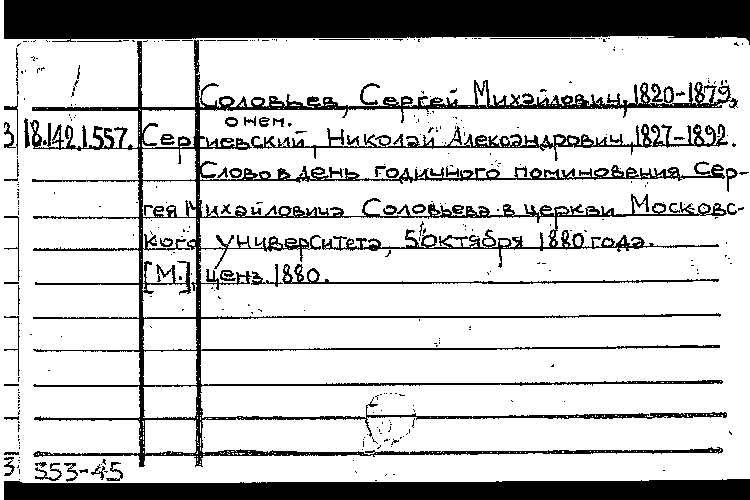 Соловьев, Сергей Михайлович, 1820-1879,
о нем.
18.142.1.557. Сергиевский, Николай Александрович, 1827-1892.
Слово в день годичного поминовения Сер-
гея Михайловича Соловьева в церкви Московс-
кого университета, 5 октября 1880 года.
[М.], ценз. 1880.
353-45